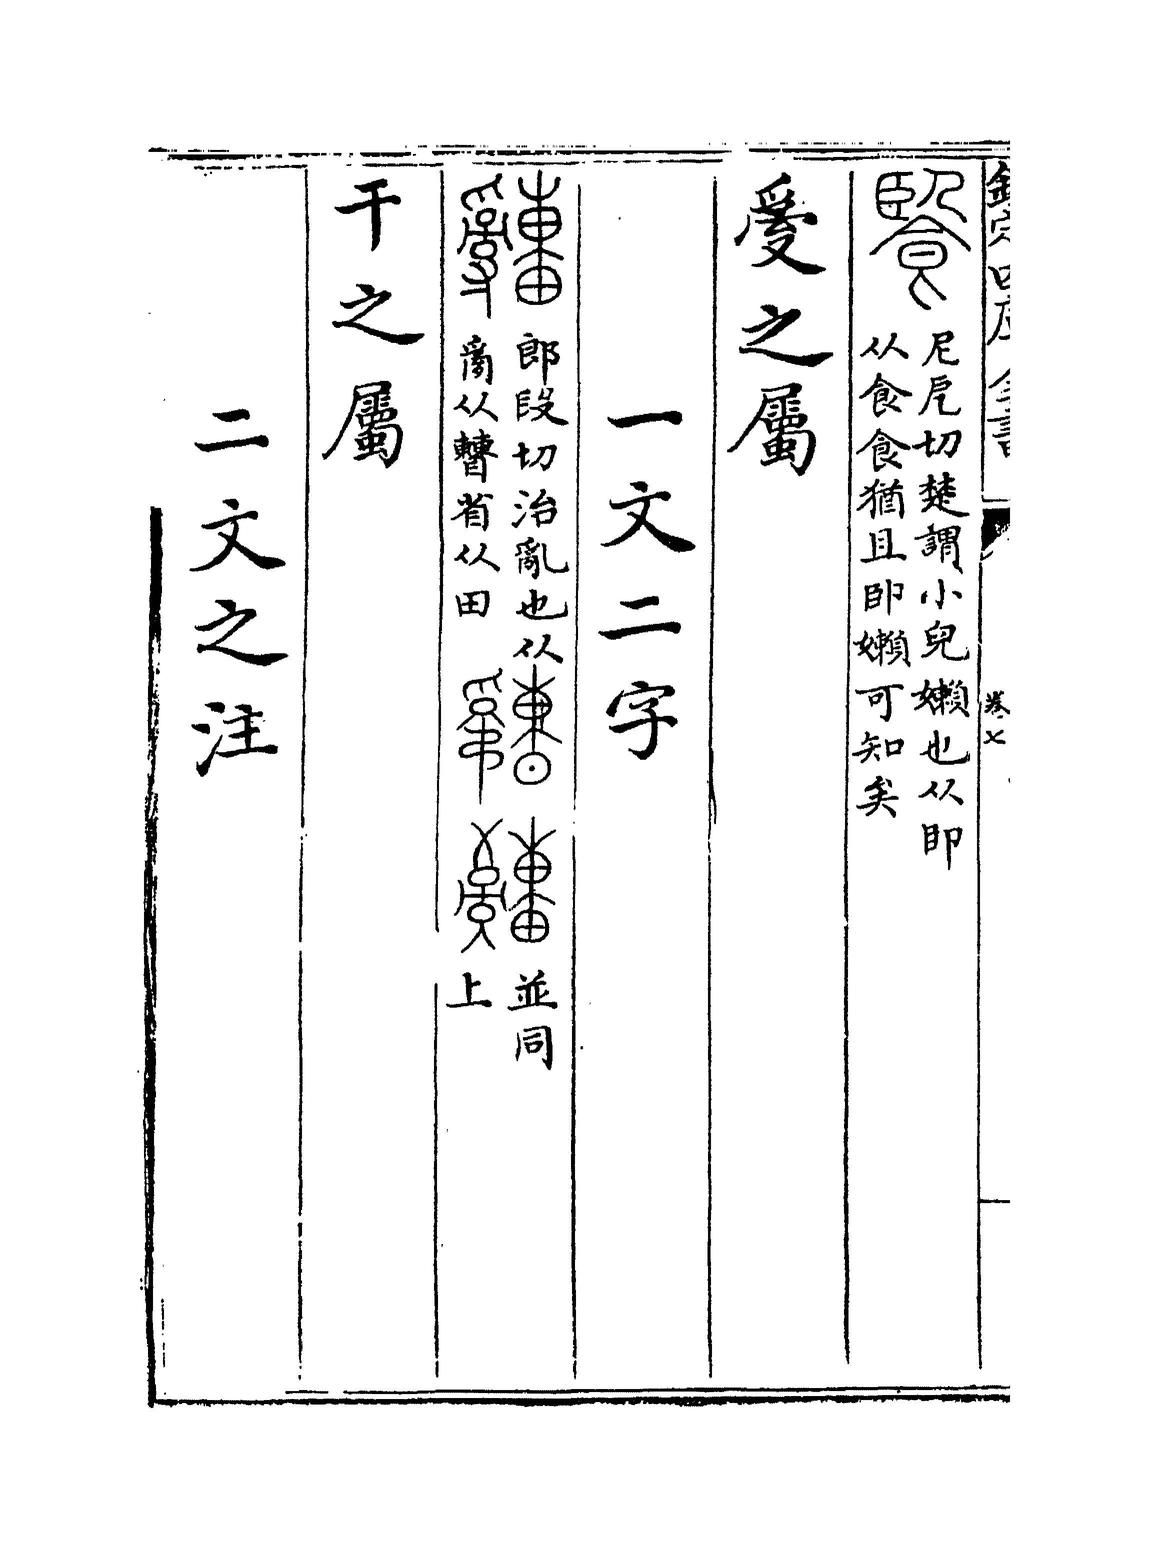 欽定四庫全書
卷七
尼戹切楚謂小兒嬾也从臥
从食食猶且臥嬾可知矣
爰之屬
一文二字
郎段切治亂也从
𤔔从𣍘省从田
並同
上
干之屬
二文之注